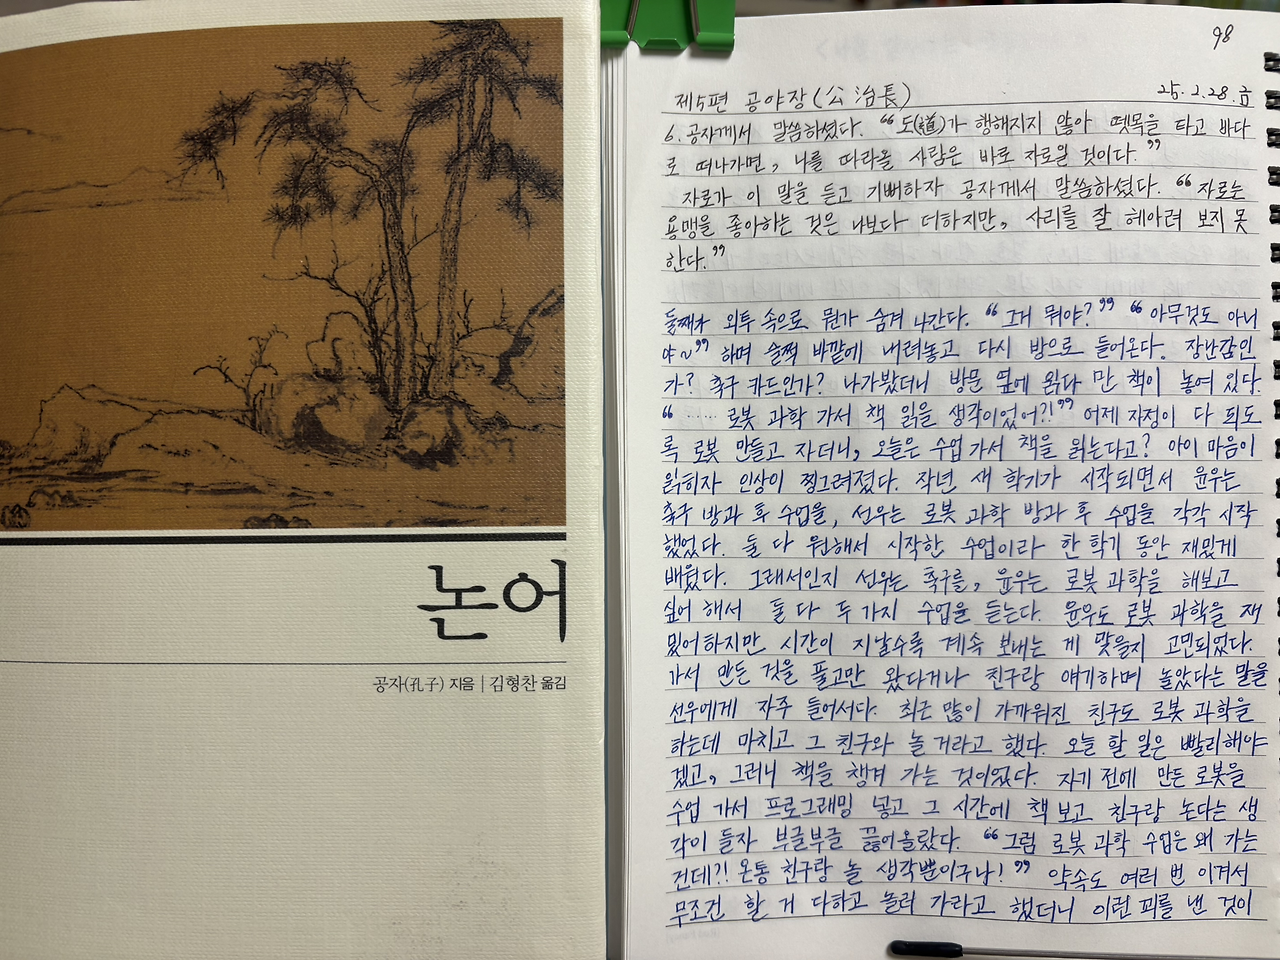 논어
공자(孔子) 지음 | 김형찬 옮김
98
제5편 공야장(公冶長) 25. 2. 28. 금
6. 공자께서 말씀하셨다. “도(道)가 행해지지 않아 뗏목을 타고 바다
로 떠나가면, 나를 따라올 사람은 바로 자로일 것이다.”
자로가 이 말을 듣고 기뻐하자 공자께서 말씀하셨다. “자로는
용맹을 좋아하는 것은 나보다 더하지만, 사리를 잘 헤아려 보지 못
한다.”
둘째가 외투 속으로 뭔가 숨겨 나간다. “그거 뭐야?” “아무것도 아니
야~” 하며 슬쩍 바깥에 내려놓고 다시 방으로 들어온다. 장난감인
가? 축구 카드인가? 나가봤더니 방문 옆에 읽다 만 책이 놓여 있다.
“ ····· 로봇 과학 가서 책 읽을 생각이었어?!” 어제 자정이 다 되도
록 로봇 만들고 자더니, 오늘은 수업 가서 책을 읽는다고? 아이 마음이
읽히자 인상이 찡그려졌다. 작년 새 학기가 시작되면서 윤우는
축구 방과 후 수업을, 선우는 로봇 과학 방과 후 수업을 각각 시작
했었다. 둘 다 원해서 시작한 수업이라 한 학기 동안 재밌게
배웠다. 그래서인지 선우는 축구를, 윤우는 로봇 과학을 해보고
싶어 해서 둘 다 두 가지 수업을 듣는다. 윤우도 로봇 과학을 재
밌어하지만 시간이 지날수록 계속 보내는 게 맞을지 고민되었다.
가서 만든 것을 풀고만 왔다거나 친구랑 얘기하며 놀았다는 말을
선우에게 자주 들어서다. 최근 많이 가까워진 친구도 로봇 과학을
하는데 마치고 그 친구와 놀 거라고 했다. 오늘 할 일은 빨리해야
겠고, 그러니 책을 챙겨 가는 것이었다. 자기 전에 만든 로봇을
수업 가서 프로그래밍 넣고 그 시간에 책 보고 친구랑 논다는 생
각이 들자 부글부글 끓어올랐다. “그럼 로봇 과학 수업은 왜 가는
건데?! 온통 친구랑 놀 생각뿐이구나!” 약속도 여러 번 어겨서
무조건 할 거 다하고 놀러 가라고 했더니 이런 꾀를 낸 것이